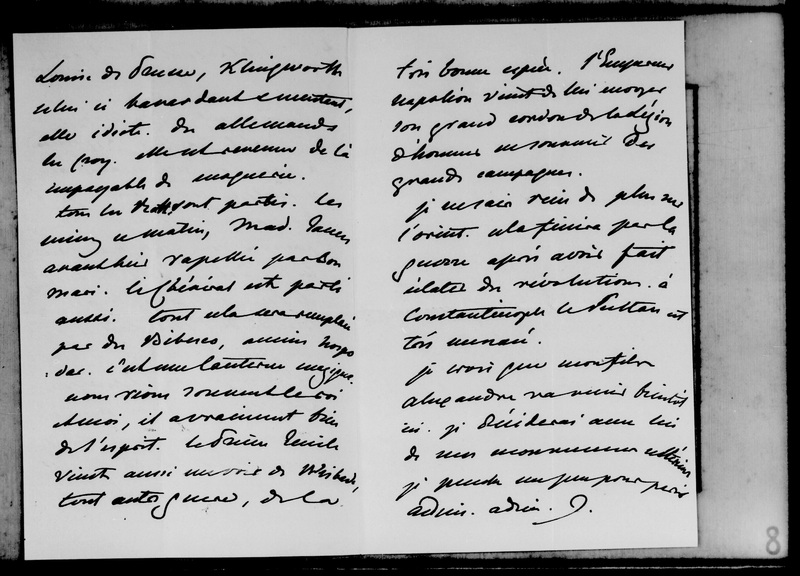 Louise de Prusse, Klingworth
celui ci bavardant & mentant,
elle idiote. des allemands
les croy. elle est revenue de là
impayable de
tous les sont partis. les
miens ce matin, Mad.
avanthier rapellée par son
mari. le Général est parti
aussi. tout cela sera remplacé
par des Bibesco, ancien hospo
-dar. c'est une lanterne magique.
nous rions souvent le roi
et moi, il a vraiment bien
de l'esprit. le Prince Emile
vient aussi me voir de Wisbade,
tout autre guerre, de la
très bonne espèce. l'Empereur
napoléon vient de lui envoyer
son grand cordon de la légion
d'honneur en souvenir des
grandes campagnes.
je ne sais rien de plus sur
l'orient. cela finira par la
guerre après avoir fait
éclater des révolutions. à
Constantinople le Sultan est
très menacé.
je crois que mon fils
alexandre va venir bientôt
ici. je déciderai avec lui
de mes mouvements ultérieurs
je penche un peu pour paris
adieu. adieu.
8